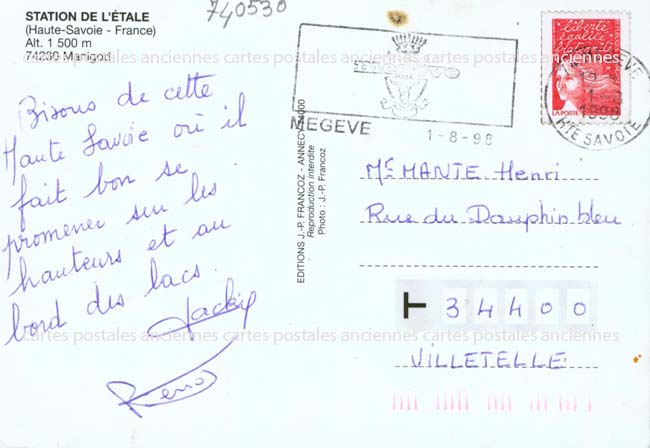 740530
STATION DE L'ÉTALE
(Haute-Savoie - France)
Alt. 1 500 m
74230 Manigod
Bisous de cette
Haute Savoie où il
fait bon se
promener sur les
hauteurs et au
bord des lacs.
Jackie
EDITIONS J.-P. FRANCOZ - ANNECY 74000
Reproduction interdite
Photo : J.-P. Francoz
MEGEVE
1-8-98
liberté
égalité
fraternité
LA POSTE
MEGEVE
1998
HTE SAVOIE
Mr MANTE Henri
Rue du Dauphin bleu
T 34400
VILLETELLE
cartes postales anciennes cartes postales anciennes cartes postales anciennes